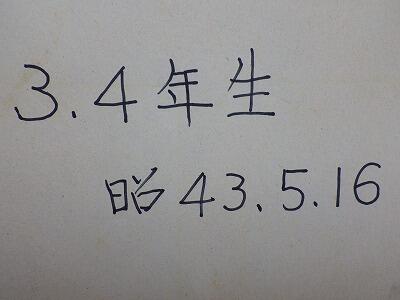 3.4年生
昭43.5.16